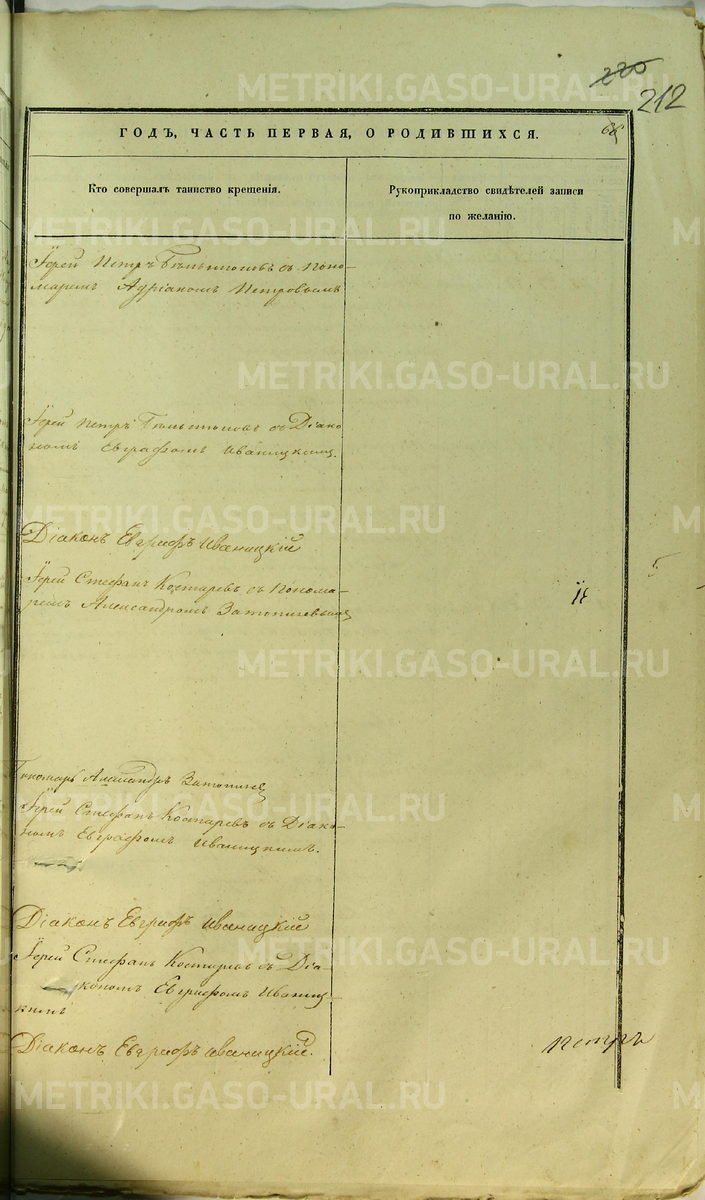 220
212
ГОДЪ, ЧАСТЬ ПЕРВАЯ, О РОДИВШИХСЯ.
Кто совершалъ таинство крещенія.
Рукоприкладство свидѣтелей записи
по желанію.
Іерей Петръ съ Поно-
маремъ Адріаномъ Петровымъ
Іерей Петръ съ Діако
номъ Евграфомъ Иваницкимъ.
Діаконъ Евграфъ Иваницкій
Іерей Стефанъ Костаревъ съ Понома-
ремъ Александромъ
Пономарь Александръ
Іерей Стефанъ Костаревъ съ Діако-
номъ Евграфомъ Иваницкимъ.
Діаконъ Евграфъ Иваницкій
Іерей Стефанъ Костаревъ съ Діа-
кономъ Евграфомъ Иваниц-
кимъ
Діаконъ Евграфъ Иваницкій.
Петръ
METRIKI.GASO-URAL.RU